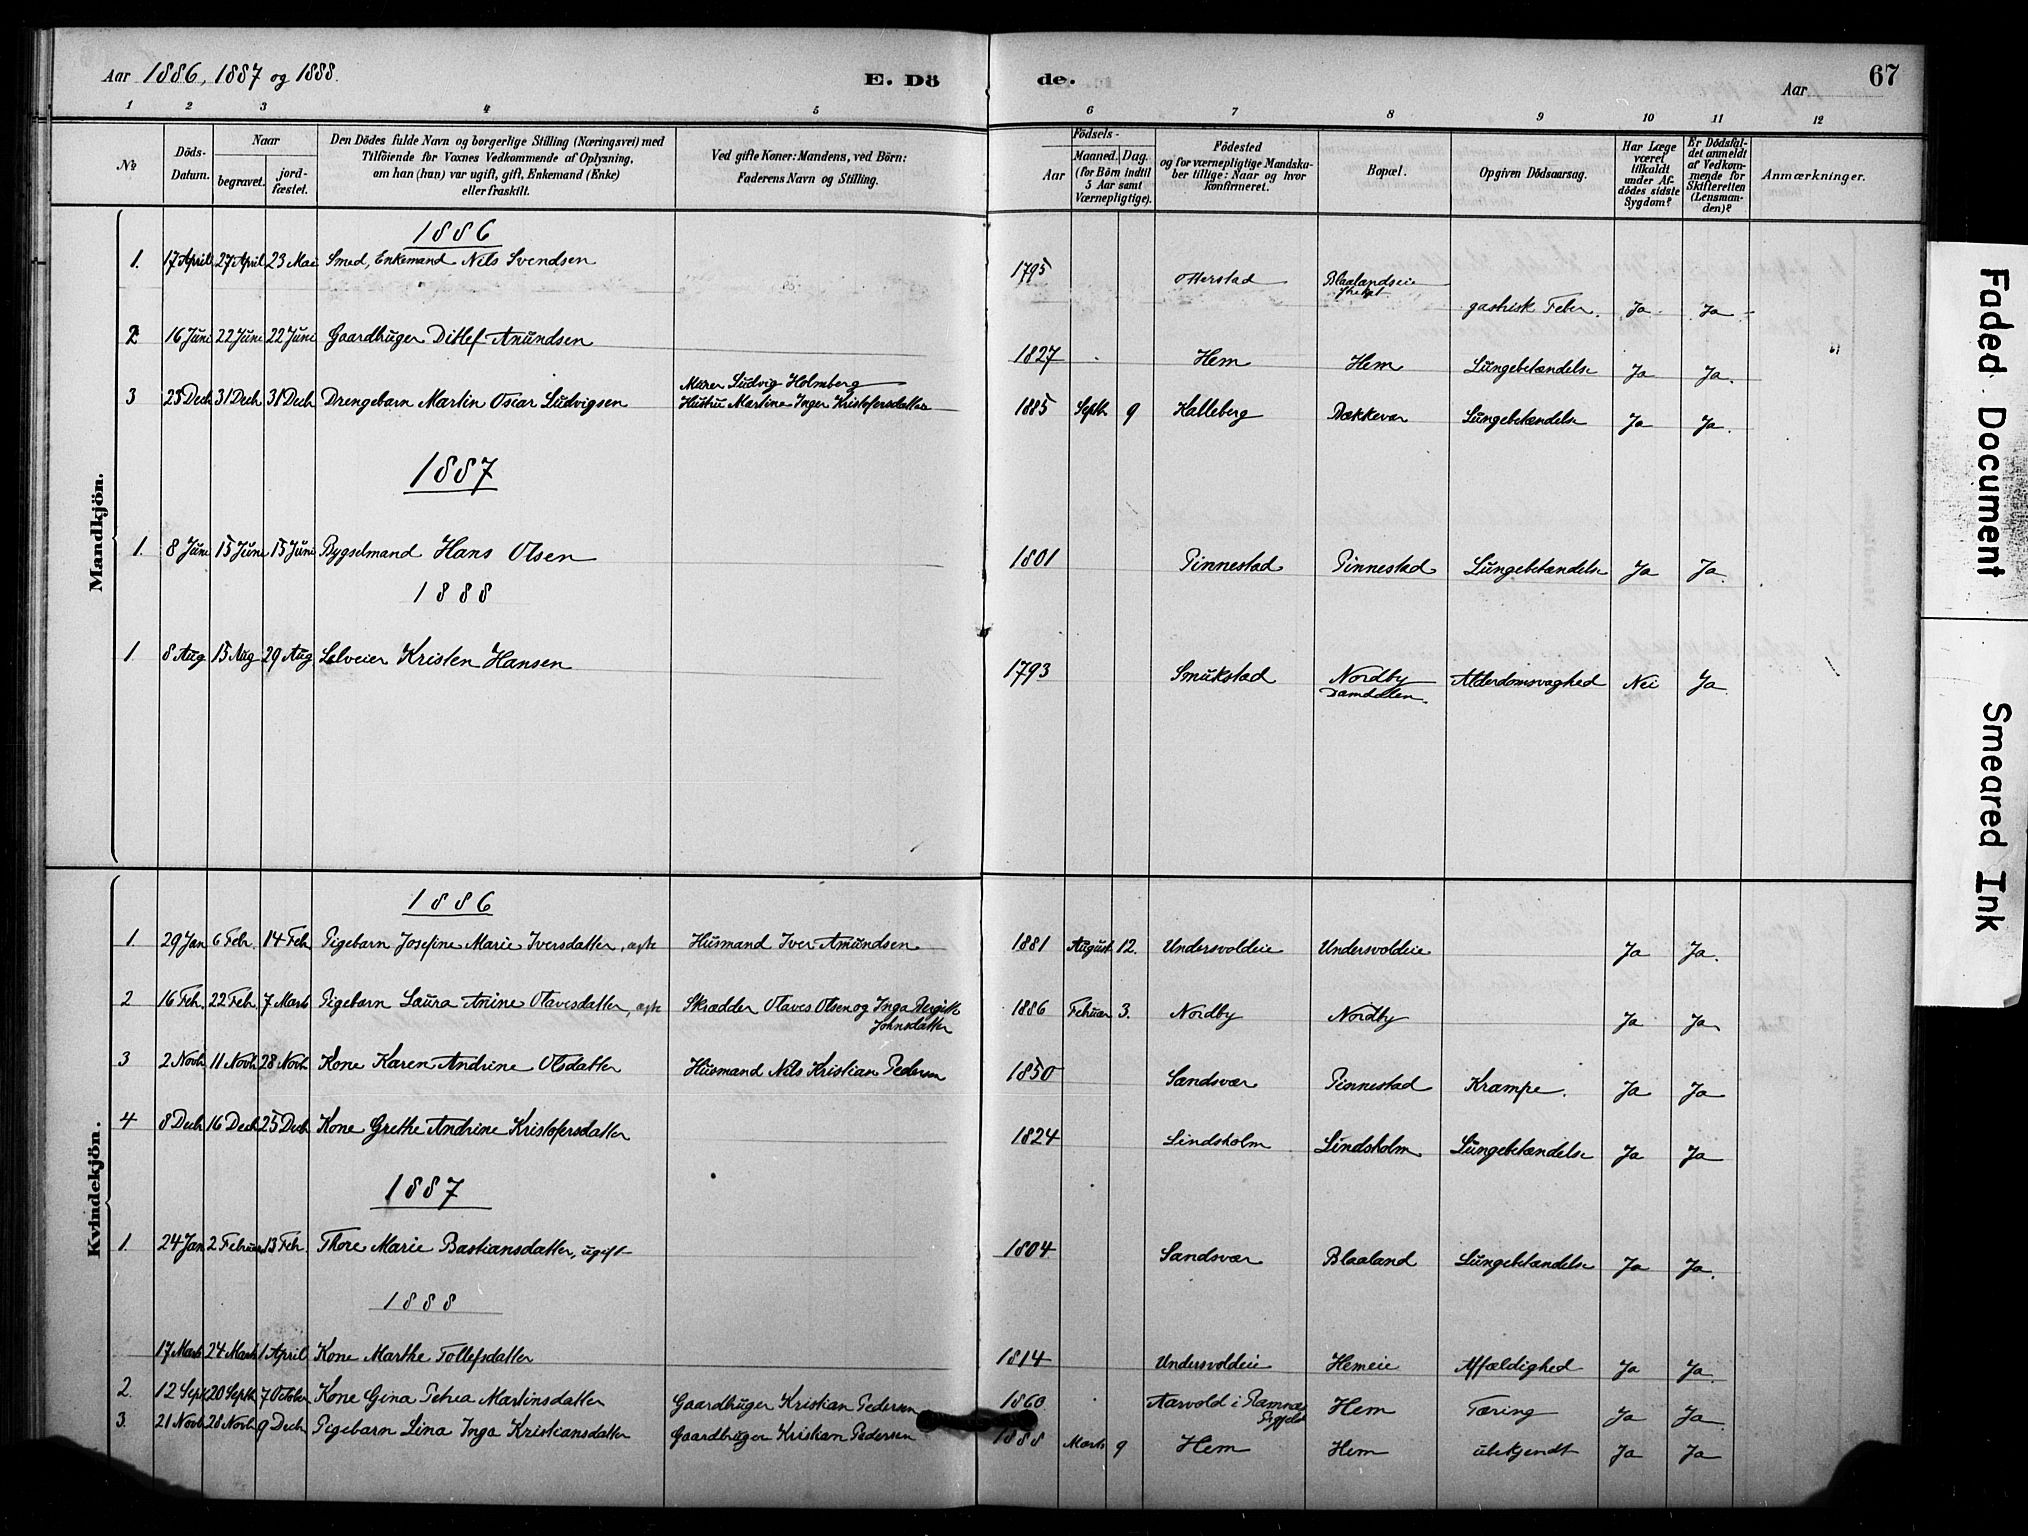 Aar 1886, 1887 og 1888.
E. Dö
de.
Aar
67
1 2 3 4 5 6 7 8 9 10 11 12
No
Döds-Datum.
Naar
begravet.
jord-fæstet.
Den Dödes fulde Navn og borgerlige Stilling (Næringsvei) med
Tilföiende for Voxnes Vedkommende af Oplysning,
om han (hun) var ugift, gift, Enkemand (Enke)
eller fraskilt.
Ved gifte Koner: Mandens, ved Börn:
Faderens Navn og Stilling.
Födsels-
Aar
Maaned. Dag.
(for Börn indtil
5 Aar samt
Værnepligtige).
Födested
og for værnepligtige Mandska-
ber tillige: Naar og hvor
konfirmeret.
Bopæl.
Opgiven Dödsaarsag.
Har Læge
været
tilkaldt
under Af-
dödes sidste
Sygdom?
Er Dödsfal-
det anmeldt
af Vedkom-
mende for
Skifteretten
(Lensman-
den)?
Anmærkninger.
Mandkjön.
1886
1. 17 April 27 April 23 Mai Smed, Enkemand Nils Svendsen 1795 Otterstad Blaalandseie gastrisk Feber. Ja Ja
2 16 Juni 22 Juni 22 Juni Gaardbruger Ditlef Amundsen 1827 Hem Hem Lungebetændelse Ja Ja.
3 23 Decb 31 Decb 31 Decb Drengebarn Martin Oscar Ludvigsen Murer Ludvig Holmberg
Hustru Martine Inger Kristofersdatter 1885 Septb 9 Halleberg Bækkevar Lungebetændelse Ja Ja.
1887
1. 8 Juni 15 Juni 15 Juni Bygselmand Hans Olsen 1801 Pinnestad Pinnestad Lungebetændelse Ja Ja.
1888
1 8 Aug 15 Aug 29 Aug Selveier Kristen Hansen 1793 Smukstad Nordby
Damdalen. Alderdomsvaghed Nei Ja
Kvindekjön.
1886
1. 29 Jan 6 Febr. 14 Feb Pigebarn Josefine Marie Iversdatter, ægte Husmand Iver Amundsen 1881 August 12. Undersvoldeie Undersvoldeie Ja Ja.
2 16 Feb. 22 Feb. 7 Marts Pigebarn Laura Anine Olavesdatter, ægte Skrædder Olaves Olsen og Inga Birgitte
Johnsdatter 1886 Februar 3. Nordby Nordby Ja Ja
3 2 Novb 11 Novb 28 Novb Kone Karen Andrine Olsdatter Husmand Nils Kristian Pedersen 1850 Sandsvær Pinnestad Krampe. Ja Ja
4 8 Decb 16 Decb 25 Decb Kone Grethe Andrine Kristofersdatter 1824 Lindsholm Lindsholm Lungebetændelse Ja Ja
1887
1. 24 Jan 2 Februar 13 Feb. Thore Marie Bastiansdatter, ugift 1804 Sandsvær Blaaland Lungebetændelse Ja Ja.
1888
17 Marts 24 Marts 1 April Kone Marthe Tollefsdatter 1814 Undersvoldeie Hemeie Affældighed Ja Ja.
2. 12 Septb 20 Septb 7 October Kone Gina Petrea Martinsdatter Gaardbruger Kristian Pedersen 1860 Aarvold i Ramnæs Hem Tæring Ja Ja
3. 21 Novb 28 Novb 9 Decb Pigebarn Lina Inga Kristiansdatter Gaardbruger Kristian Pedersen 1888 Marts 9 Hem Hem ubekjendt Ja Ja
Faded Document
Smeared Ink